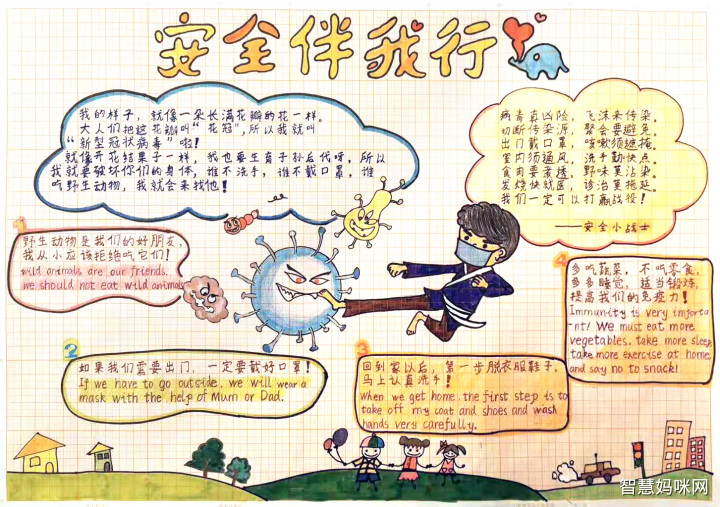 安全伴我行
我的样子，就像一朵长满花瓣的花一样。
大人们把这花瓣叫“花冠”，所以我就叫
“新型冠状病毒”啦！
就像开花结果子一样，我也要生育子孙后代呀，所以
我就要破坏你们的身体，谁不洗手，谁不戴口罩，谁
吃野生动物，我就会来找他！
病毒真凶险，飞沫来传染。
切断传染源，聚会要避免。
出门戴口罩，咳嗽须遮掩。
室内须通风，洗手勤快点。
食肉要煮透，野味莫沾染。
发烧快就医，该治莫拖延。
我们一定可以打赢战役！
——安全小战士
1
野生动物是我们的好朋友，
我从小应该拒绝吃它们！
wild animals are our friends.
we should not eat wild animals
2
如果我们需要出门，一定要戴好口罩！
If we have to go outside, we will wear a
mask with the help of Mum or Dad.
3
回到家以后，第一步脱衣服鞋子，
马上认真洗手！
when we get home, the first step is to
take off my coat and shoes and wash
hands very carefully.
4
多吃蔬菜，不吃零食，
多多睡觉，适当锻炼，
提高我们的免疫力！
Immunity is very importa
-nt! We must eat more
vegetables, take more sleep
take more exercise at home,
and say no to snack!
智慧妈咪网